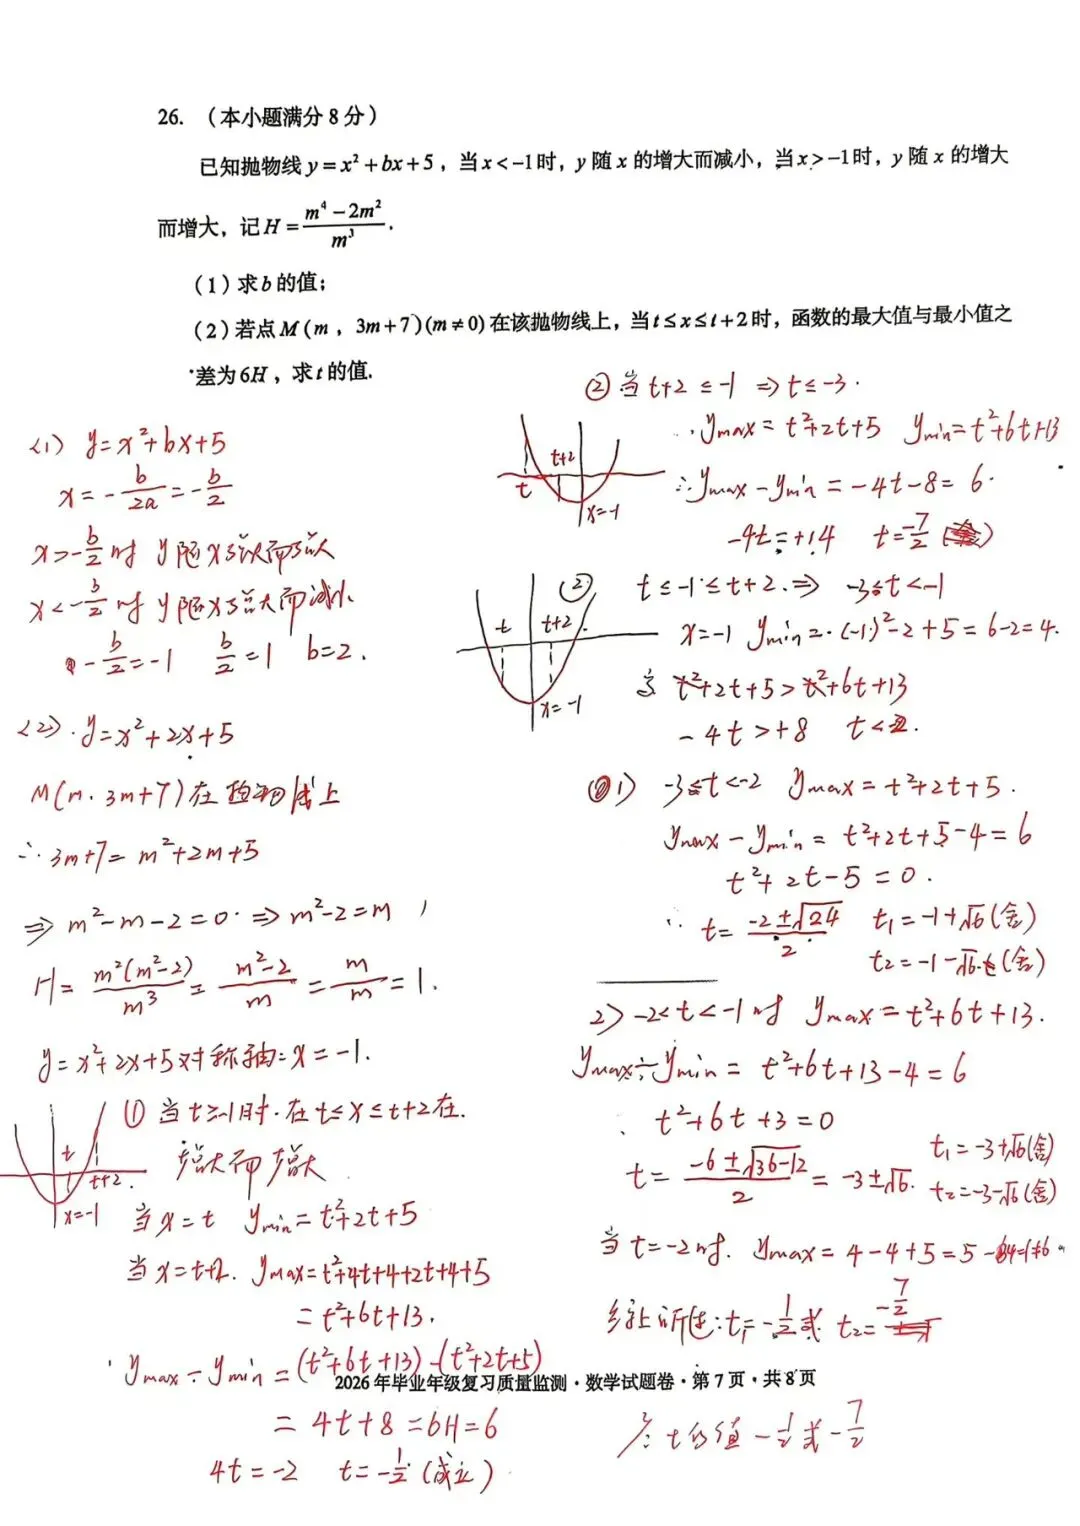 26. （本小题满分 8 分）
已知抛物线 y=x²+bx+5，当 x<-1 时，y 随 x 的增大而减小，当 x>-1 时，y 随 x 的增大
而增大，记 H=(m⁴-2m²)/m³.
（1）求 b 的值；
（2）若点 M(m，3m+7)(m≠0) 在该抛物线上，当 t≤x≤t+2 时，函数的最大值与最小值之
差为 6H，求 t 的值.
<1) y=x²+bx+5
x=-b/2a=-b/2
x>-b/2 时 y随x增大而增大
x<-b/2 时 y随x增大而减小
-b/2=-1 b/2=1 b=2.
<2>. y=x²+2x+5
M(m. 3m+7)在抛物线上
∴ 3m+7=m²+2m+5
⇒ m²-m-2=0 ⇒ m²-2=m
H=m²(m²-2)/m³=m²-2/m=m/m=1.
y=x²+2x+5对称轴:x=-1.
① 当t≥-1时.在t≤x≤t+2在.
增大而增大
t
t+2.
x=-1
当x=t ymin=t²+2t+5
当x=t+2. ymax=t²+4t+4+2t+4+5
=t²+6t+13.
ymax-ymin=(t²+6t+13)-(t²+2t+5)
=4t+8=6H=6
4t=-2 t=-1/2(成立)
② 当 t+2≤-1 ⇒t≤-3.
t+2
t
x=-1
∴ymax=t²+2t+5 ymin=t²+6t+13
∴ymax-ymin=-4t-8=6.
-4t=+14 t=-7/2
② t≤-1≤t+2.⇒ -3≤t<-1
t
t+2
x=-1
x=-1 ymin=(-1)²-2+5=6-2=4.
当 t²+2t+5>t²+6t+13
-4t>+8 t<-2.
1) -3≤t<-2 ymax=t²+2t+5.
ymax-ymin=t²+2t+5-4=6
t²+2t-5=0.
∴ t=-2±√24/2 t₁=-1+√6(舍)
t₂=-1-√6(舍)
2) -2<t<-1时 ymax=t²+6t+13.
ymax-ymin=t²+6t+13-4=6
t²+6t+3=0
t=-6±√36-12/2=-3±√6. t₁=-3+√6(舍)
t₂=-3-√6(舍)
当t=-2时. ymax=4-4+5=5 -4=1≠6
综上所述:t₁=-1/2或 t₂=-7/2
∴t的值-1/2或-7/2
2026 年毕业年级复习质量监测·数学试题卷·第 7 页·共 8 页